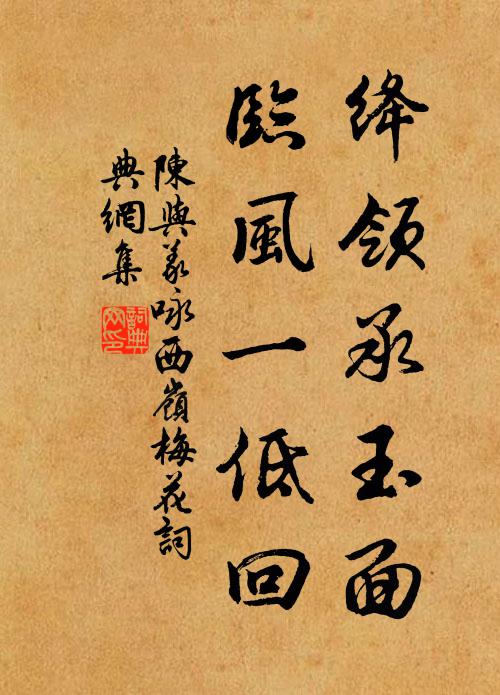 绛領承玉面
臨風一低回
陳與義咏西嶺梅花詞
典網集
詞典
网印